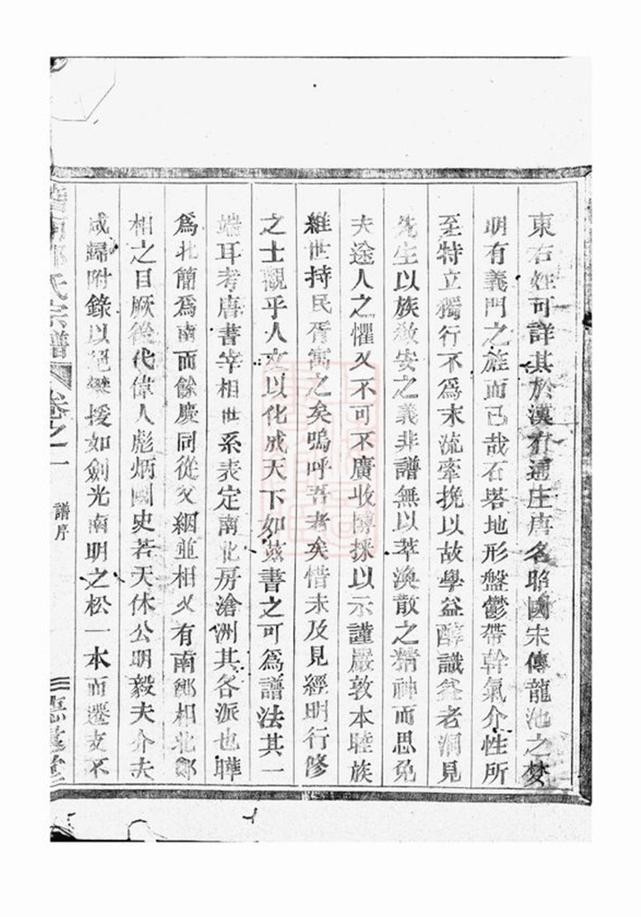 東右姓可詳其於漢有通庄唐名昭國宋傳龍池之焚
明有義門之旌而已哉石塔地形盤鬱帶幹氣介性所
至特立獨行不為末流牽挽以故學益醇識益老洞見
先生以族敘安之義非譜無以萃渙散之精神而思免
夫途人之懼又不可不廣收博採以示謹嚴敦本睦族
維世持民胥寓之矣嗚呼吾老矣惜未及見經明行修
之士觀乎人文以化成天下如茲書之可為譜法其一
端耳考唐書宰相世系表定南北房滄洲其各派也瞱
為北簡為南而餘慶同從父絪並相又有南鄭相北鄭
相之目厥後代偉人彪炳國史若天休公明毅夫介夫
咸歸附錄以絕攀援如劍光南明之松一本而遷支不
氏宗譜
卷之一
譜序
三